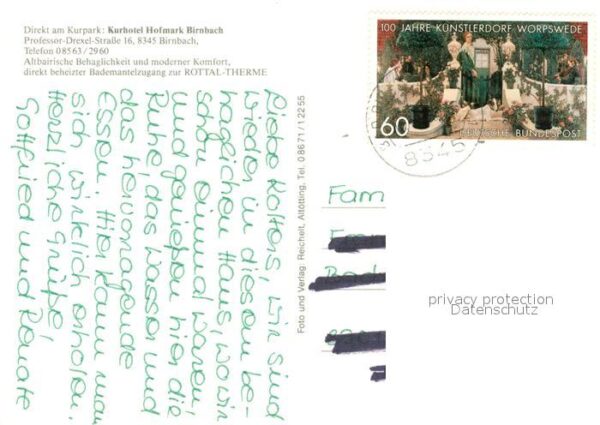 Direkt am Kurpark: Kurhotel Hofmark Birnbach
Professor-Drexel-Straße 16, 8345 Birnbach,
Telefon 08563/2960
Altbairische Behaglichkeit und moderner Komfort,
direkt beheizter Bademantelzugang zur ROTTAL-THERME
100 JAHRE KÜNSTLERDORF WORPSWEDE
60
DEUTSCHE BUNDESPOST
8345
Liebe Kolters, wir sind
wieder in diesem be-
haglichen Haus, wo wir
schon einmal waren,
und genießen hier die
Ruhe, das Wasser und
das hervorragende
Essen. Hier kann man
sich wirklich erholen.
Herzliche Grüße
Gottfried und Renate
Foto und Verlag: Reichelt, Altötting, Tel. 08671/12255
Fam
privacy protection
Datenschutz